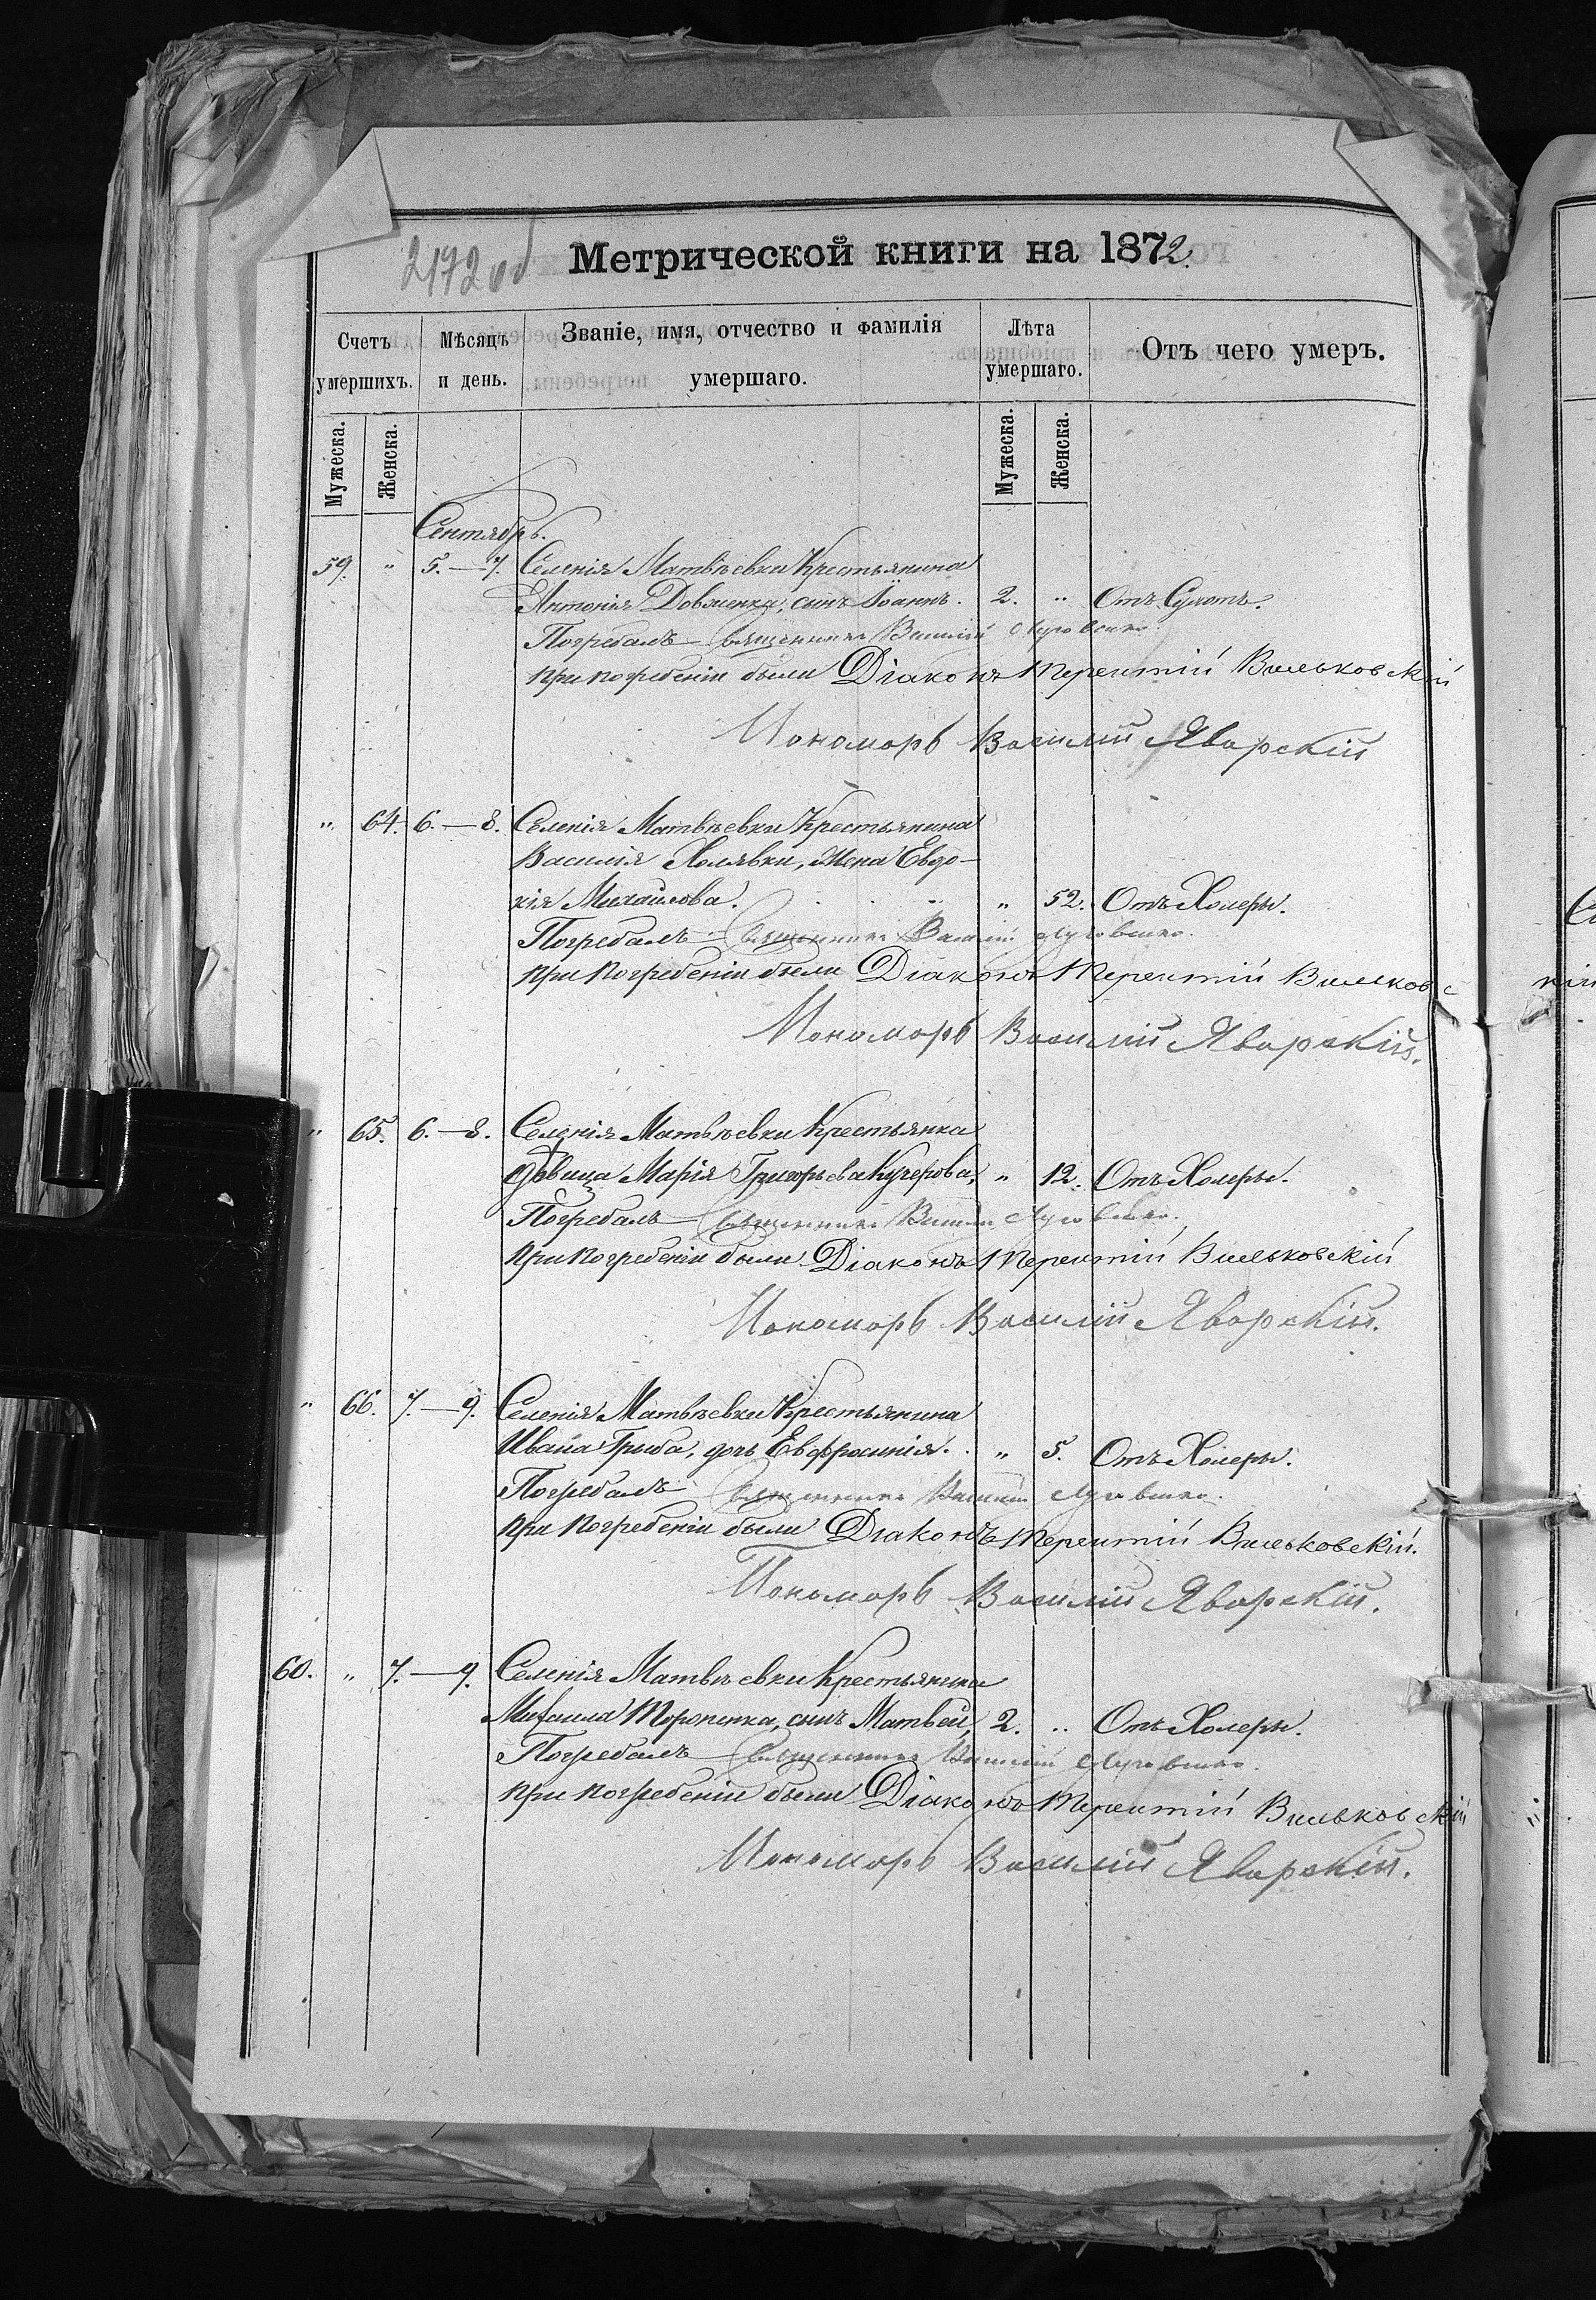 2172 об
Метрической книги на 1872.
Счетъ умершихъ.
Мѣсяцъ и день.
Званіе, имя, отчество и фамилія умершаго.
Лѣта умершаго.
Отъ чего умеръ.
Мужеска. Женска. Мужеска. Женска.
Сентябрь.
59. " 5.—7. Селенія Матвѣевки Крестьянина
Антонія Довженка, сынъ Іоаннъ. 2. " Отъ Сухотъ.
Погребалъ Священникъ Василій
при погребеніи были Діаконъ Терентій Вильковскій
Пономарь Василій Яворскій
" 64. 6.—8. Селенія Матвѣевки Крестьянина
Василія Холявки, жена Евдо-
кія Михайлова. " 52. Отъ Холеры.
Погребалъ Священникъ Василій
при погребеніи были Діаконъ Терентій Вильковс
Пономарь Василій Яворскій.
" 65. 6.—8. Селенія Матвѣевки Крестьянка
дѣвица Марія Григорьева Кучерова, " 12. Отъ Холеры.
Погребалъ Священникъ Василій
при погребеніи были Діаконъ Терентій Вильковскій
Пономарь Василій Яворскій.
" 66. 7.—9. Селенія Матвѣевки Крестьянина
Ивана Грыба, дочь Евфросинія. " 5. Отъ Холеры.
Погребалъ Священникъ Василій
при погребеніи были Діаконъ Терентій Вильковскій.
Пономарь Василій Яворскій.
60. " 7.—9. Селенія Матвѣевки Крестьянина
Михаила Торопенка, сынъ Матвей, 2. " Отъ Холеры.
Погребалъ Священникъ Василій
при погребеніи были Діаконъ Терентій Вильковскій
Пономарь Василій Яворскій.